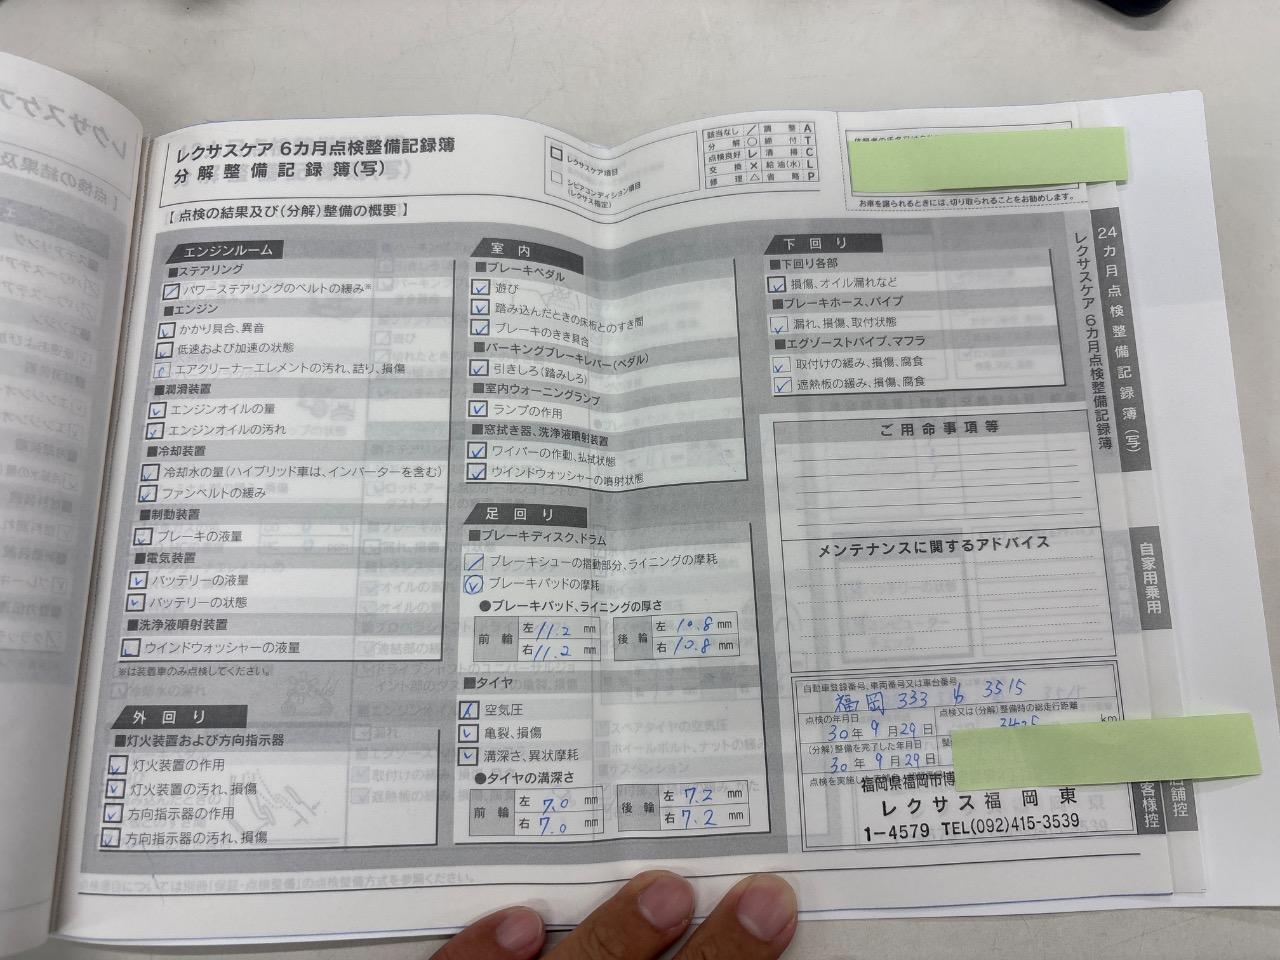 レクサスケア 6カ月点検整備記録簿
分解整備記録簿(写)
レクサスケア項目
シビアコンディション項目
(レクサス指定)
該当なし ／ 調整 A
分解 ○ 締付 T
点検良好 レ 清掃 C
交換 × 給油(水) L
修理 △ 省略 P
お車を譲られるときには、切り取られることをお勧めします。
【 点検の結果及び(分解)整備の概要 】
エンジンルーム
■ステアリング
パワーステアリングのベルトの緩み※
■エンジン
かかり具合、異音
低速および加速の状態
エアクリーナーエレメントの汚れ、詰り、損傷
■潤滑装置
エンジンオイルの量
エンジンオイルの汚れ
■冷却装置
冷却水の量(ハイブリッド車は、インバーターを含む)
ファンベルトの緩み
■制動装置
ブレーキの液量
■電気装置
バッテリーの液量
バッテリーの状態
■洗浄液噴射装置
ウインドウォッシャーの液量
※は装着車のみ点検してください。
外回り
■灯火装置および方向指示器
灯火装置の作用
灯火装置の汚れ、損傷
方向指示器の作用
方向指示器の汚れ、損傷
室内
■ブレーキペダル
遊び
踏み込んだときの床板とのすき間
ブレーキのきき具合
■パーキングブレーキレバー(ペダル)
引きしろ(踏みしろ)
■室内ウォーニングランプ
ランプの作用
■窓拭き器、洗浄液噴射装置
ワイパーの作動、払拭状態
ウインドウォッシャーの噴射状態
足回り
■ブレーキディスク、ドラム
ブレーキシューの摺動部分、ライニングの摩耗
ブレーキパッドの摩耗
●ブレーキパッド、ライニングの厚さ
前輪 左 11.2 mm 後輪 左 10.8 mm
右 11.2 mm 右 10.8 mm
■タイヤ
空気圧
亀裂、損傷
溝深さ、異状摩耗
●タイヤの溝深さ
前輪 左 7.0 mm 後輪 左 7.2 mm
右 7.0 mm 右 7.2 mm
下回り
■下回り各部
損傷、オイル漏れなど
■ブレーキホース、パイプ
漏れ、損傷、取付状態
■エグゾーストパイプ、マフラ
取付けの緩み、損傷、腐食
遮熱板の緩み、損傷、腐食
ご用命事項等
メンテナンスに関するアドバイス
自動車登録番号、車両番号又は車台番号
福岡 333 も 3515
点検の年月日 点検又は(分解)整備時の総走行距離
30年 9月29日 km
(分解)整備を完了した年月日
30年 9月29日
点検を実施し
福岡県福岡市博
レクサス福岡東
1-4579 TEL(092)415-3539
24カ月点検整備記録簿(写)
レクサスケア 6カ月点検整備記録簿
自家用乗用
店舗控
客様控
点検項目については別冊「保証・点検整備」の点検整備方式を参照ください。